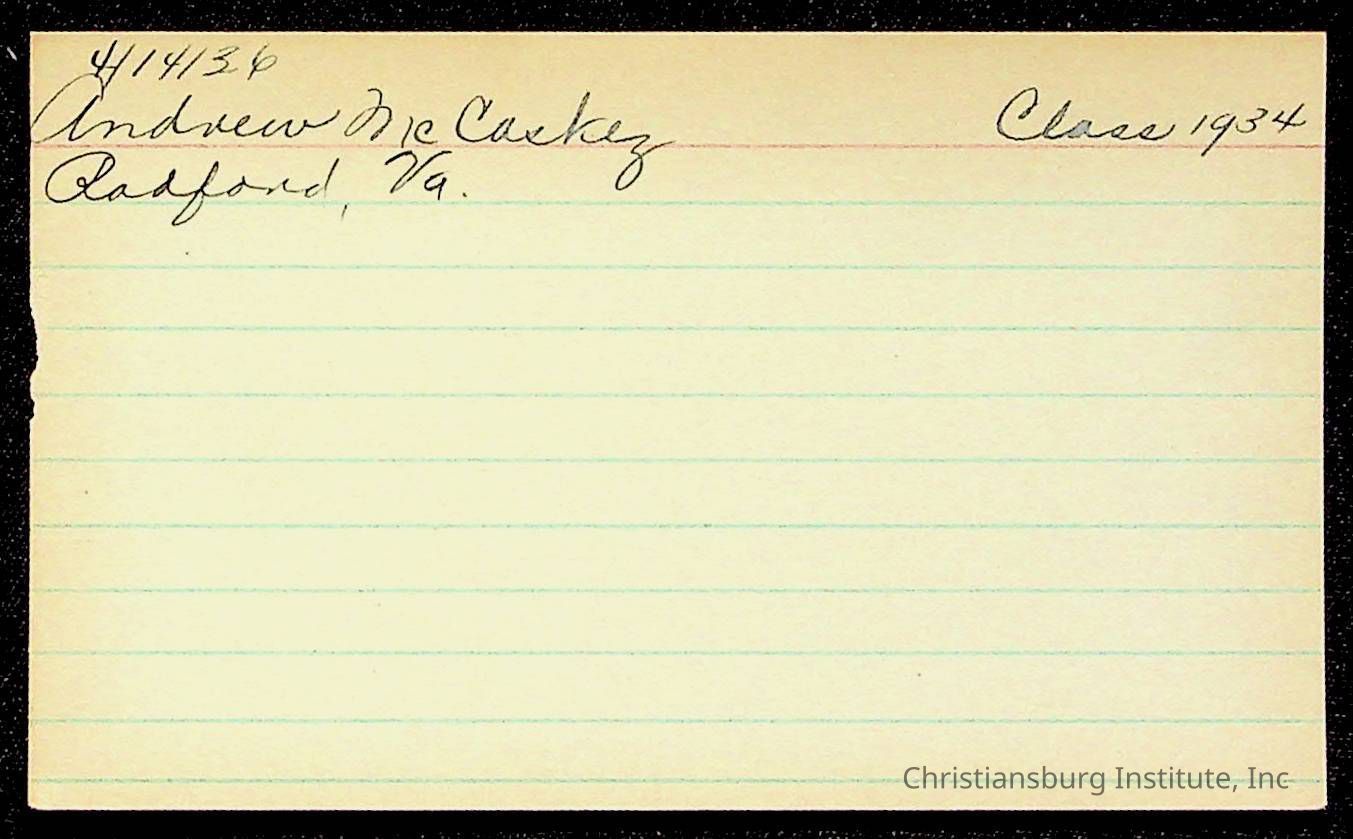 4/14/36
Andrew McCaskey Class 1934
Radford, Va.
Christiansburg Institute, Inc